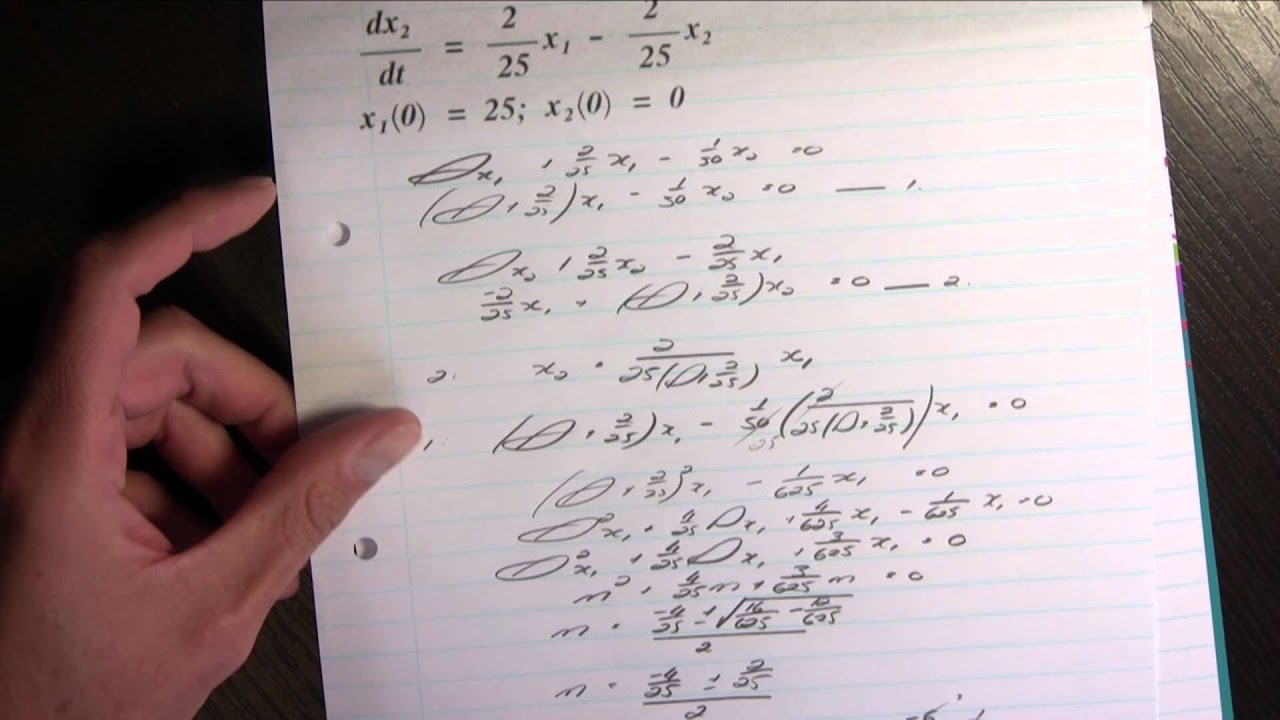 dx₂/dt = 2/25 x₁ - 2/25 x₂
x₁(0) = 25; x₂(0) = 0
Dx₁ + 2/25 x₁ - 1/50 x₂ = 0
(D + 2/25)x₁ - 1/50 x₂ = 0 — 1.
Dx₂ + 2/25 x₂ - 2/25 x₁
-2/25 x₁ + (D + 2/25)x₂ = 0 — 2.
2: x₂ = 2/25(D + 2/25) x₁
1: (D + 2/25)x₁ - 1/50 (2/25(D + 2/25))x₁ = 0
25
(D + 2/25)²x₁ - 1/625 x₁ = 0
D²x₁ + 4/25 Dx₁ + 4/625 x₁ - 1/625 x₁ = 0
D²x₁ + 4/25 Dx₁ + 3/625 x₁ = 0
m² + 4/25 m + 3/625 m = 0
m = -4/25 ± √(16/625 - 12/625) / 2
m = -4/25 ± 2/25 / 2